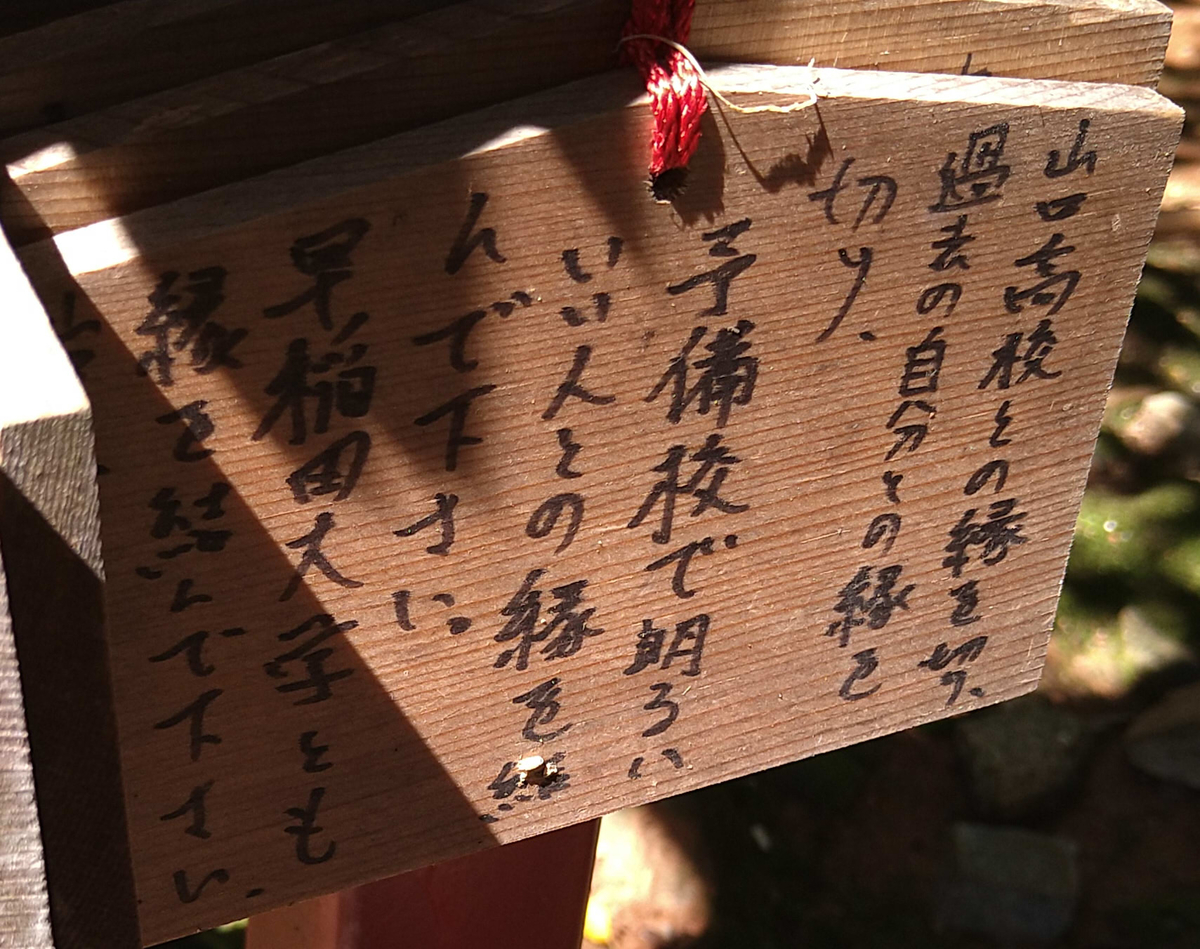 山口高校との縁を切り、
過去の自分との縁を
切り、
予備校で明るい
いい人との縁を結
んで下さい
早稲田大学とも
縁を結んで下さい。